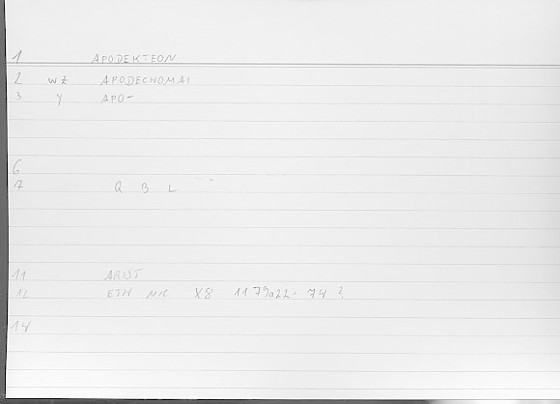 1 APODEKTEON
2 wz APODECHOMAI
3 y APO-
6
7 Q B L
11 ARIST
12 ETH NIC X8 1179a22-
14